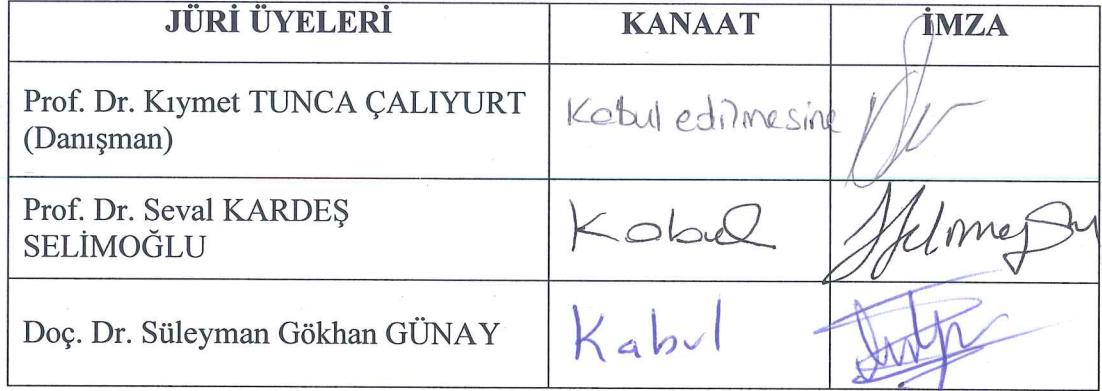 JÜRİ ÜYELERİ KANAAT İMZA
Prof. Dr. Kıymet TUNCA ÇALIYURT
(Danışman)
Kabul edilmesine
Prof. Dr. Seval KARDEŞ
SELİMOĞLU
Kabul
Doç. Dr. Süleyman Gökhan GÜNAY
Kabul